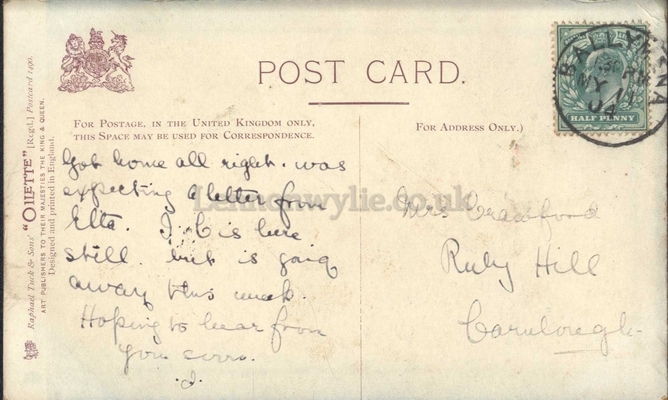 POST CARD.
FOR POSTAGE, IN THE UNITED KINGDOM ONLY,
THIS SPACE MAY BE USED FOR CORRESPONDENCE.
FOR ADDRESS ONLY.)
Raphael Tuck & Sons' "OILETTE" [Regd.] Postcard 1490.
ART PUBLISHERS TO THEIR MAJESTIES THE KING & QUEEN.
Designed and printed in England.
Got home all right. was
expecting a letter from
Etta. is here
still. but is going
away this week.
Hoping to hear from
you soon.
J.
Mrs Crawford
Ruby Hill
Carnlough
BALLYMENA
MY
04
HALF PENNY
Lennonwylie.co.uk